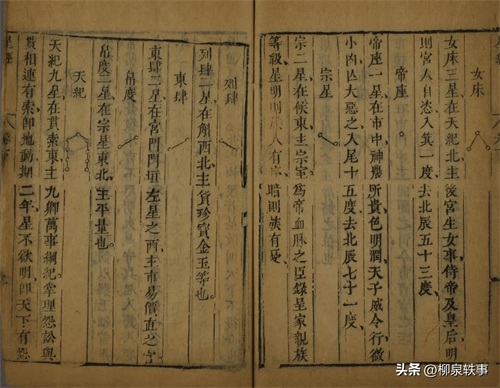 女床
女床三星在天紀北主後宮生女事侍帝及皇后明
則宮人自恣入箕一度去北辰五十三度
帝座
帝座一星在市中神農所貴色明潤天子威令行微
小凶亡大惡之入尾十五度去北辰七十一度
宗星
宗二星在候東主宗室為帝血脉之臣錄呈家親族
等級星明則族人有序暗則族有憂
列肆
列肆二星在斛西北主貨珍寶金玉等也
東肆
東肆二星在宮門門垣左星之西主市易價直之
帛度
帛度二星在宗星東北主平量也
天紀
天紀九星在貫索東主九卿萬事綱紀掌理怨訟與
貫相連有索即地動期二年星不欲明即天下有怨
星經
头条 @柳泉轶事